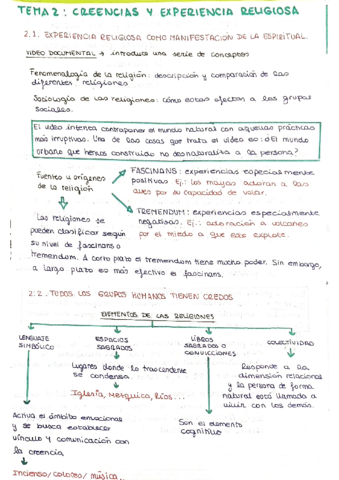 TEMA 2: CREENCIAS Y EXPERIENCIA RELIGIOSA
2.1. EXPERIENCIA RELIGIOSA COMO MANIFESTACIÓN DE LA ESPIRITUAL.
VIDEO DOCUMENTAL → introduce una serie de conceptos
Fenomenología de la religión: descripción y comparación de las
diferentes religiones
Sociología de las religiones: cómo estas afectan a los grupos
sociales.
El video intenta contraponer el mundo natural con aquellas prácticas
más irruptivas. Una de las cosas que trata el video es: ¿El mundo
urbano que hemos construido no desnaturaliza a la persona?
Fuentes u orígenes
de la religión
FASCINANS: experiencias especialmente
positivas Ej.: los mayas adoraban a las
aves por su capacidad de volar.
TREMENDUM: experiencias especialmente
negativas. Ej.: adoración a volcanes
por el miedo a que este explote.
Las religiones se
pueden clasificar según
su nivel de fascinans o
tremendum. A corto plazo el tremendum tiene mucho poder. Sin embargo,
a largo plazo es más efectivo el fascinans.
2.2. TODOS LOS GRUPOS HUMANOS TIENEN CREDOS
ELEMENTOS DE LAS RELIGIONES
LENGUAJE
SIMBÓLICO
ESPACIOS
SAGRADOS
LIBROS
SAGRADOS O
CONVICCIONES
COLECTIVIDAD
Lugares donde lo trascendente
se condensa.
Iglesia, Mezquita, Ríos...
Responde a la
dimensión relacional
y la persona de forma
natural está llamada a
vivir con los demás.
Activa el ámbito emocional
y se busca establecer
vínculo y comunicación con
la creencia
Son el elemento
cognitivo
Incienso/colores/música...